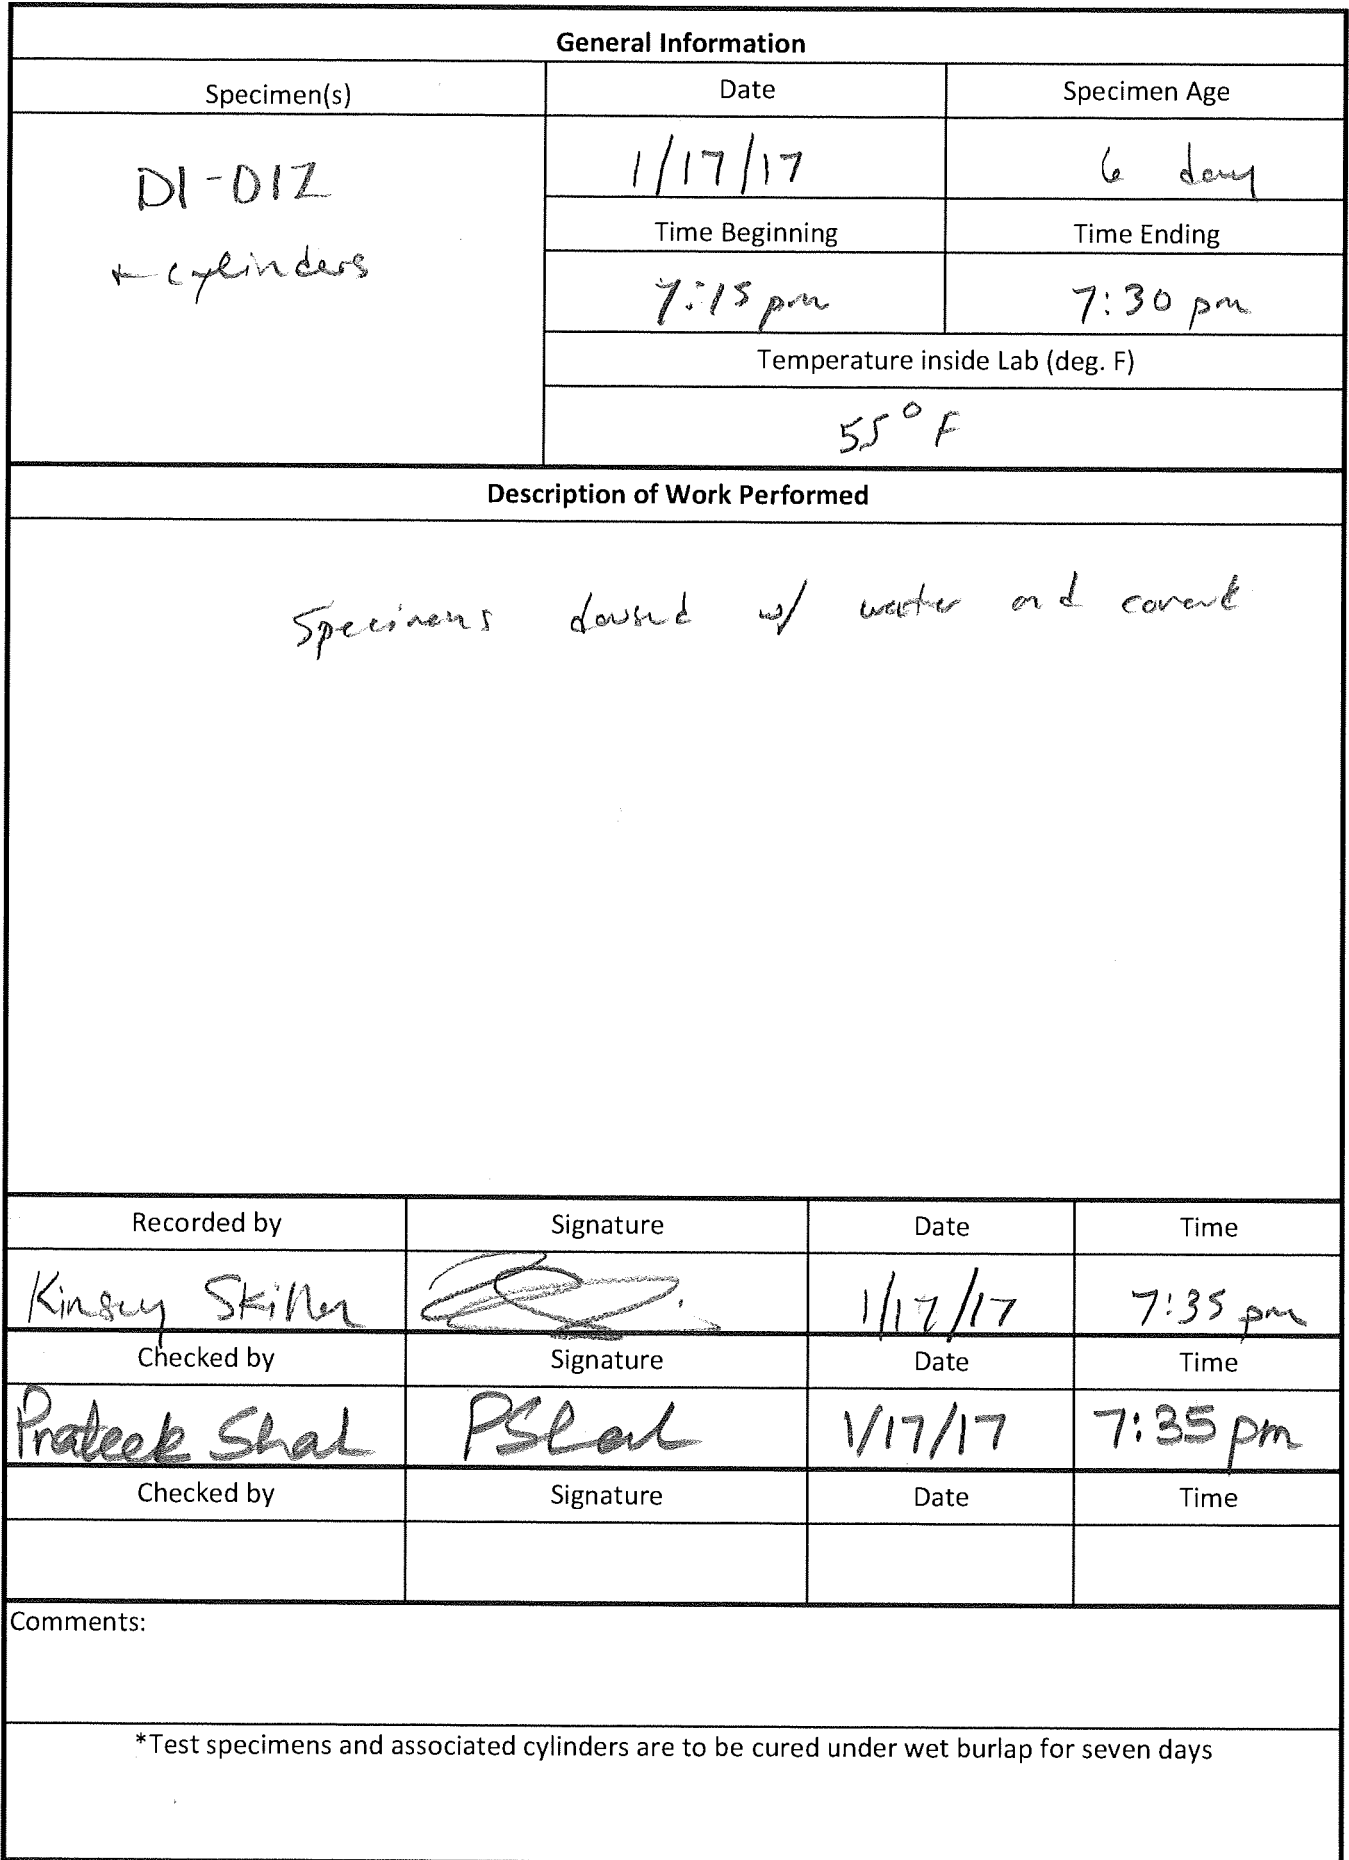 General Information
Specimen(s) Date Specimen Age
D1-D12 1/17/17 6 day
+ cylinders
Time Beginning Time Ending
7:15 pm 7:30 pm
Temperature inside Lab (deg. F)
55° F
Description of Work Performed
Specimens doused w/ water and covered
Recorded by Signature Date Time
Kinsey Skillen 1/17/17 7:35 pm
Checked by Signature Date Time
Prateek Shah PShah 1/17/17 7:35 pm
Checked by Signature Date Time
Comments:
*Test specimens and associated cylinders are to be cured under wet burlap for seven days